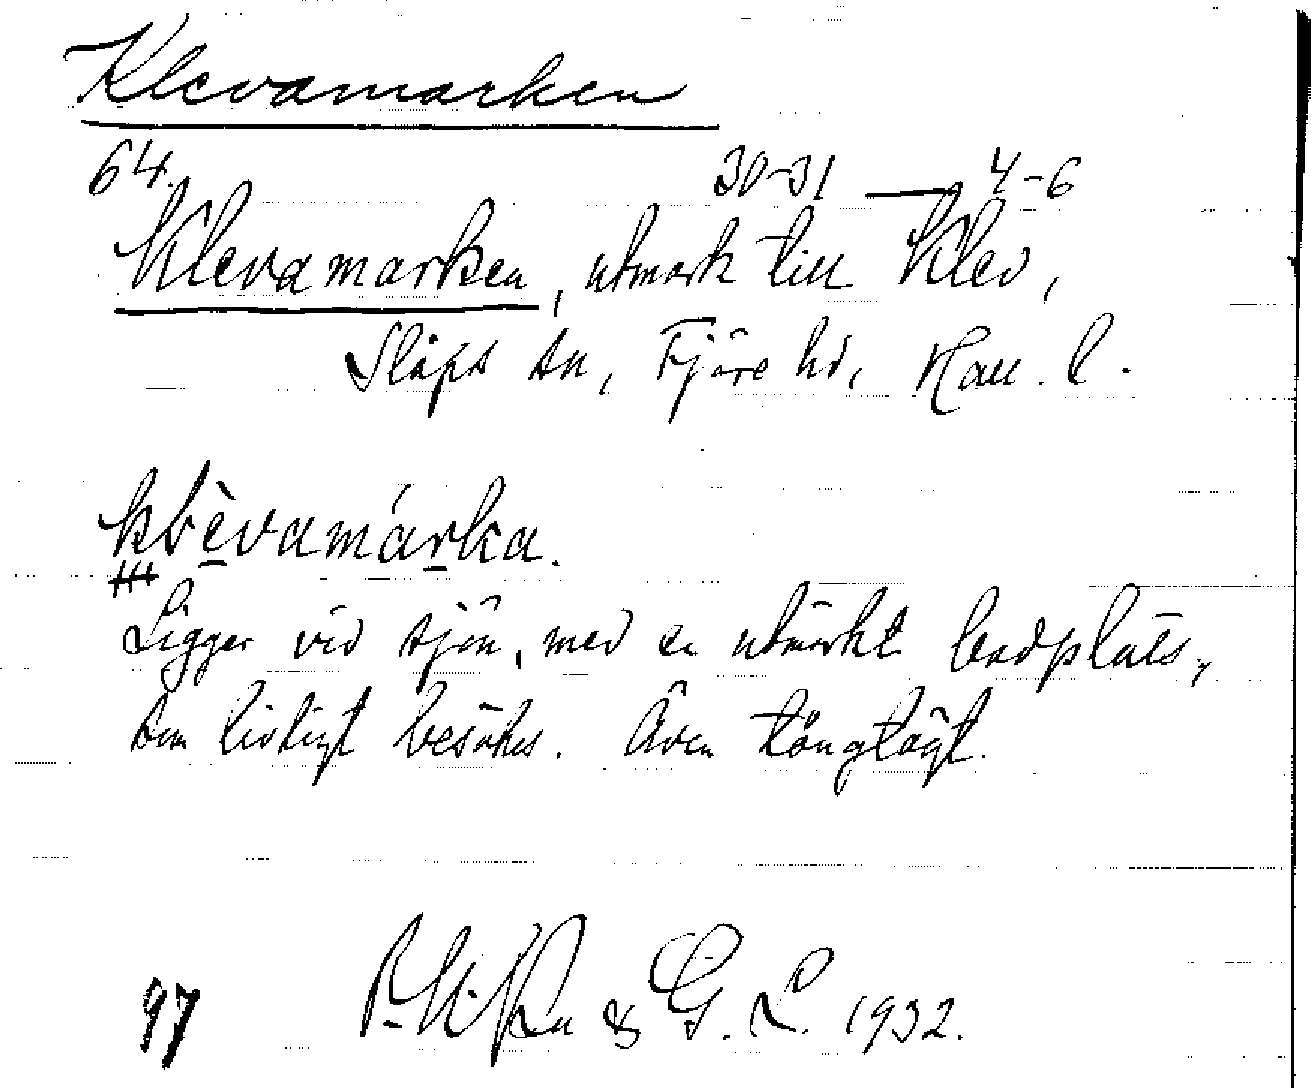 Klevamarken
64. 30-31 — 4-6
Klevamarken, utmark till Klev,
Släps sn, Fjäre hd, Hall. l.
klèvamárka.
Ligger vid sjön, med en utmärkt badplats,
som livligt besökes. Även tångtägt.
97 & G. L. 1932.